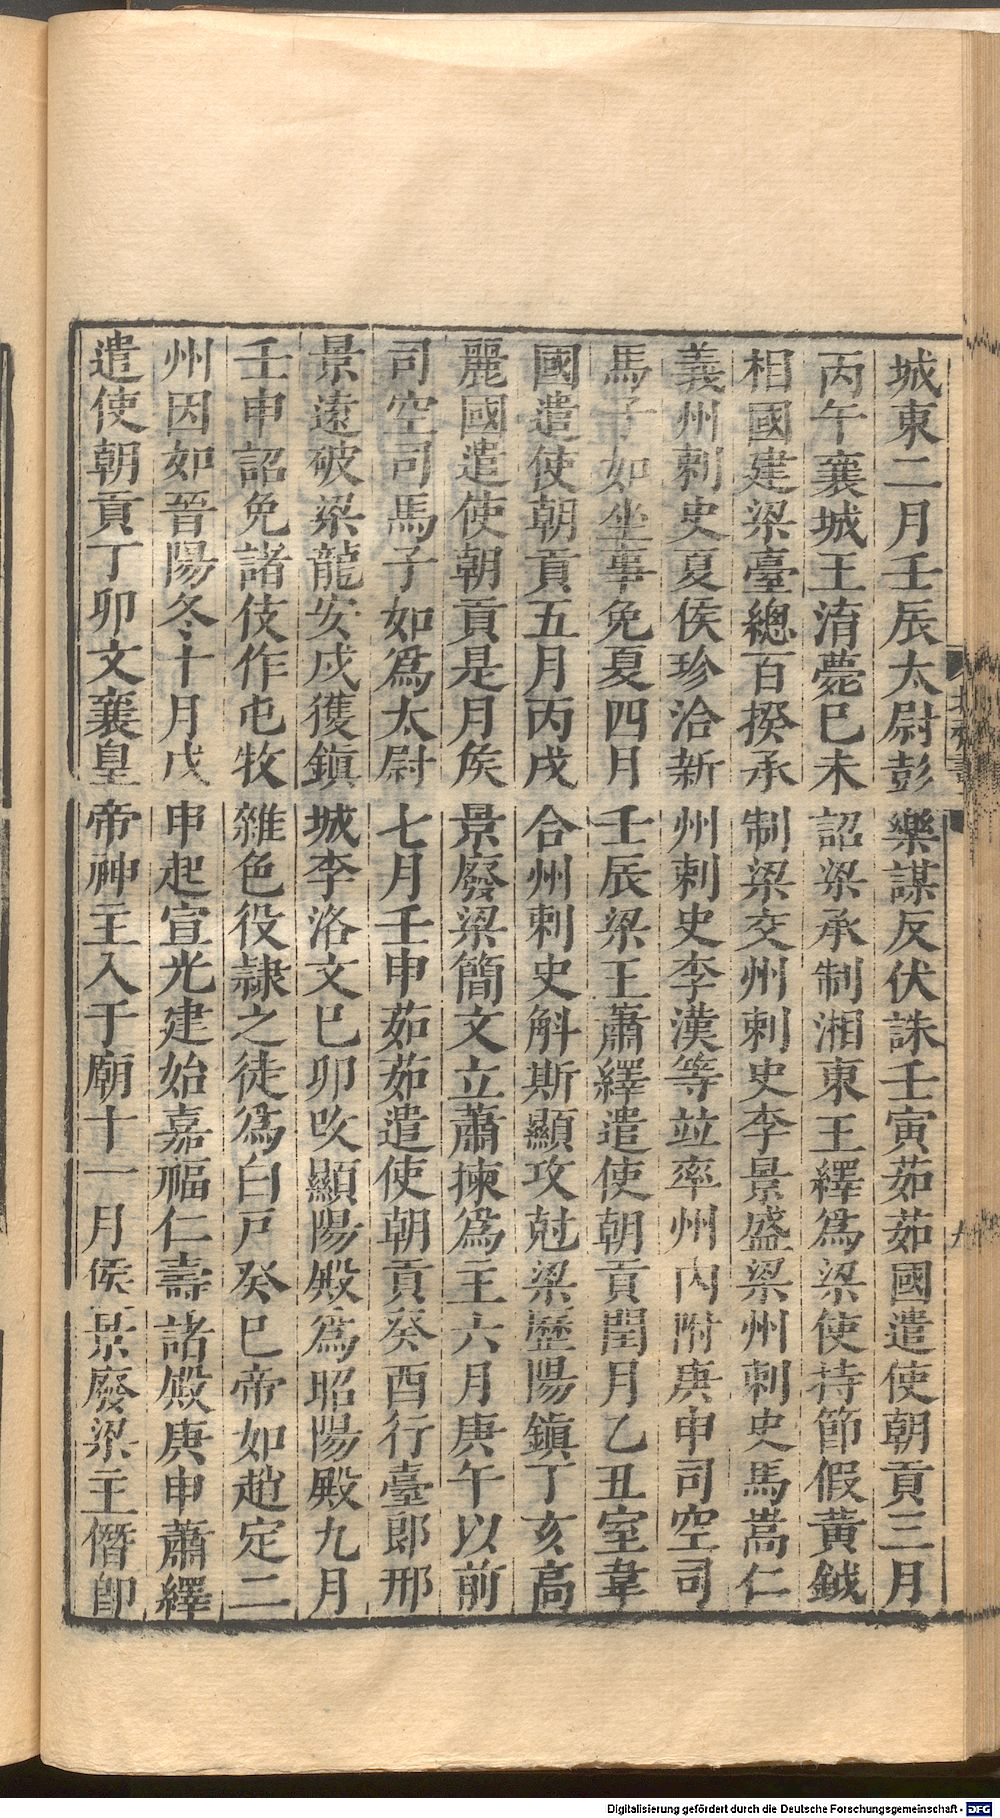 城東二月壬辰太尉彭樂謀反伏誅壬寅茹茹國遣使朝貢三月
丙午襄城王淯薨巳未詔梁承制湘東王繹爲梁使持節假黃鉞
相國建梁臺總百揆承制梁交州刺史李景盛梁州刺史馬嵩仁
義州刺史夏侯珍洽新州刺史李漢等並率州內附庚申司空司
馬子如坐事免夏四月壬辰梁王蕭繹遣使朝貢閏月乙丑室韋
國遣使朝貢五月丙戌合州刺史斛斯顯攻尅梁歷陽鎮丁亥高
麗國遣使朝貢是月侯景廢梁簡文立蕭揀爲主六月庚午以前
司空司馬子如爲太尉七月壬申茹茹遣使朝貢癸酉行臺郎邢
景遠破梁龍安戍獲鎮城李洛文巳卯改顯陽殿爲昭陽殿九月
壬申詔免諸伎作屯牧雜色役隸之徒爲白戸癸巳帝如趙定二
州因如晉陽冬十月戊申起宣光建始嘉福仁壽諸殿庚申蕭繹
遣使朝貢丁卯文襄皇帝神主入于廟十一月侯景廢梁主僭卽
Digitalisierung gefördert durch die Deutsche Forschungsgemeinschaft - DFG